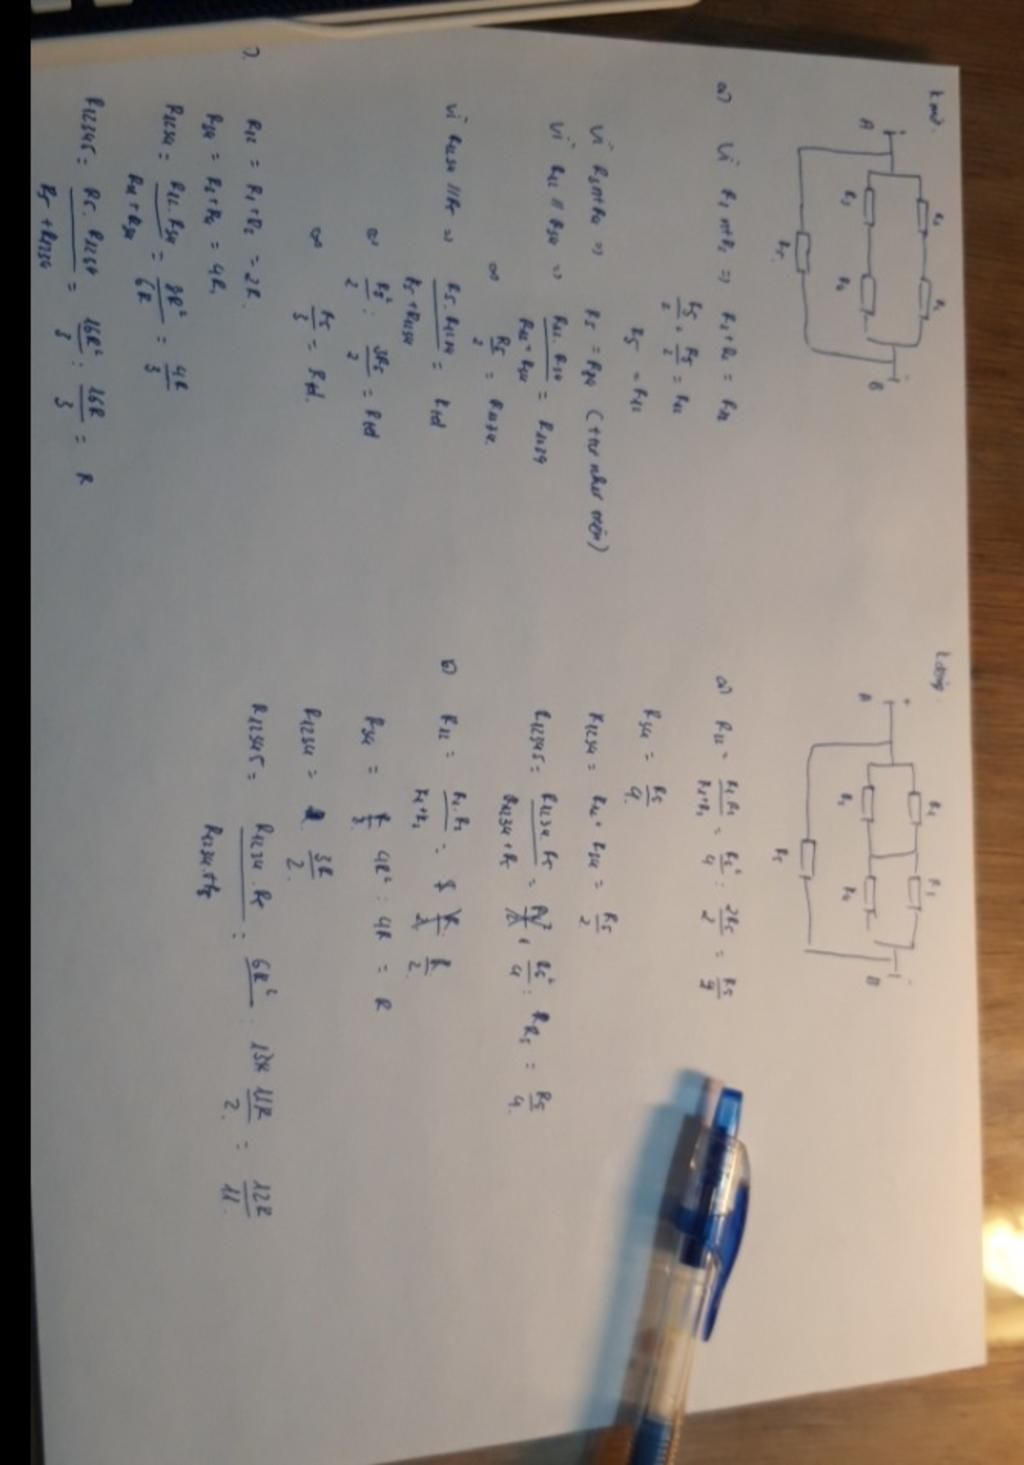 K mở.
A
B
R1
R2
R3
R4
R5
a) Vì R1 nt R2 => R1 + R2 = R12
R5/2 + R5/2 = R12
R5 = R12
Vì R3 nt R4 => R5 = R34 (+tự như trên)
Vì R12 // R34 => R12.R34 / R12+R34 = R1234
<=> R5/2 = R1234.
Vì R1234 // R5 => R5.R1234 / R5+R1234 = Rtđ
<=> R5²/2 : 3R5/2 = Rtđ
<=> R5/3 = Rtđ.
R12 = R1+R2 = 2R.
R34 = R3+R4 = 4R.
R1234 = R12.R34 / R12+R34 = 8R² / 6R = 4R / 3
R12345 = R5.R1234 / R5+R1234 = 16R² / 3 : 16R / 3 = R
K đóng
A
B
R5
a) R12 = R1.R3 / R1+R3 = R5² / 4 : 2R5 / 2 = R5 / 4
R34 = R5 / 4.
R1234 = R12+R34 = R5 / 2
R12345 = R1234.R5 / R1234+R5 = R5 / 4.
b)
R34 = 4R² : 4R = R
R1234 = 3R / 2.
R12345 = R1234.R5 / R1234+R5 = 6R² : 11R / 2 = 12R / 11.